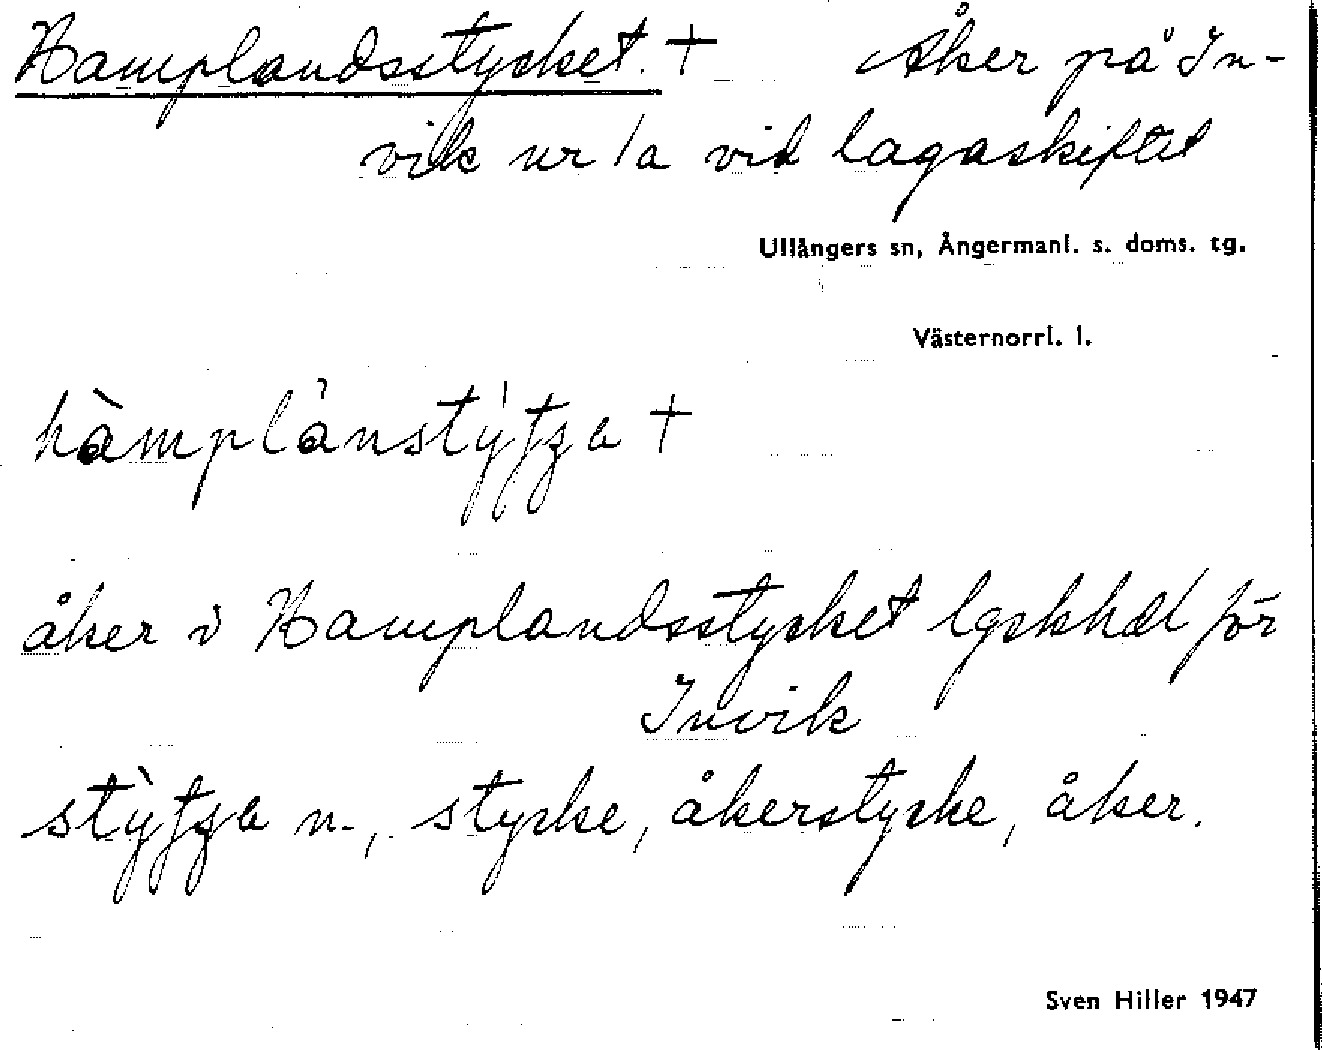 Hamplandsstycket. + Åker på In-
vik nr 1a vid lagaskiftet
Ullångers sn, Ångermanl. s. doms. tg.
Västernorrl. l.
+
åker i Hamplandsstycket lgskhdl för
Invik
n., stycke, åkerstycke, åker.
Sven Hiller 1947